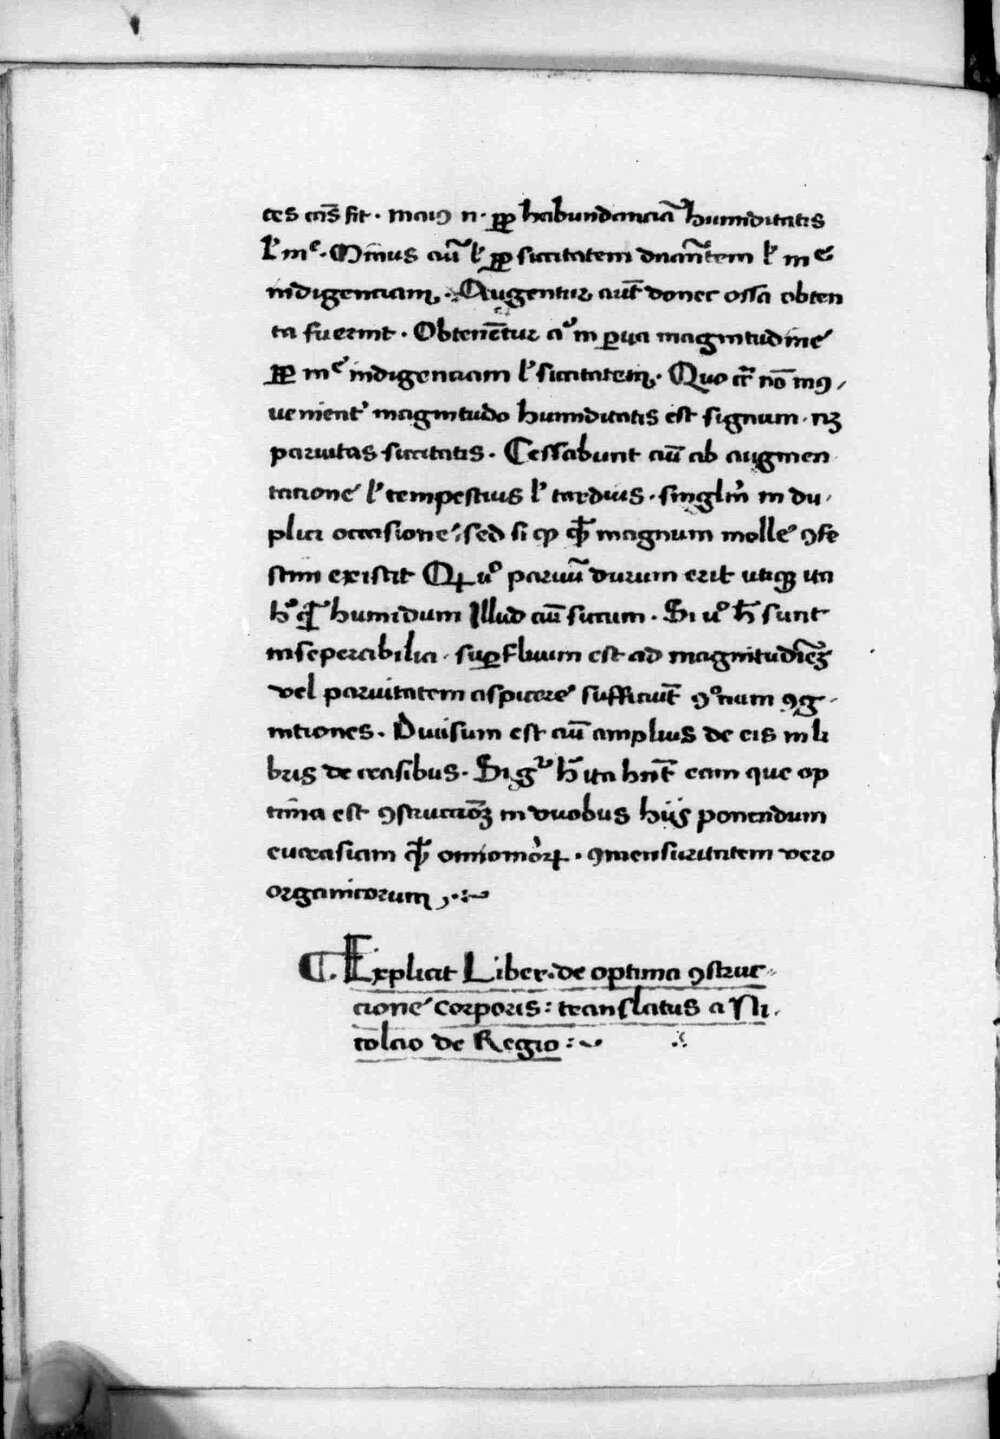 tes cās̄ fit · maiꝰ n · ꝓp̱ habundanciā humiditatis
lˀ mͤ · Minus aū lˀ ꝓp̱ siccitatem lˀ mͤ
indigenciam · Augentur aūt donec ossa obten
ta fuerint · Obtenēt̄ur aͧ in ꝑua magnitudine
ꝓp̱ mͤ indigenciam lˀ siccitatem · Quo cͥ nō inꝰ
uenientˀ magnitudo humiditatis est signum · nꝫ
paruitas siccitatis · Cessabunt aū ab augmen
tatione lˀ tempestius lˀ tardius · singlʼr in du
plici occasione · sed si qͥ magnum molle ꝯfe
stim existit uͦ paruū durum erit utiqꝫ ita
hͦ humidum Illud aū siccum · Si uͦ h̄ sunt
inseperabilia · suꝑfluum est ad magnitudīeꝫ
vel paruitatem aspicere sufficiūt ꝯg
nitiones · Diuisum est aū amplius de eis in li
bris de crasibus · Si gͬ h̄ ita hn̄t eam que op
tima est ꝯstructiōꝫ in duobus hijs ponendum
eucrasiam omiomoꝝ · ꝯmensuritatem vero
organicorum
¶ · Explicit Liber · de optima ꝯstruc
cione corporis : translatus a Ni
colao de Regio :